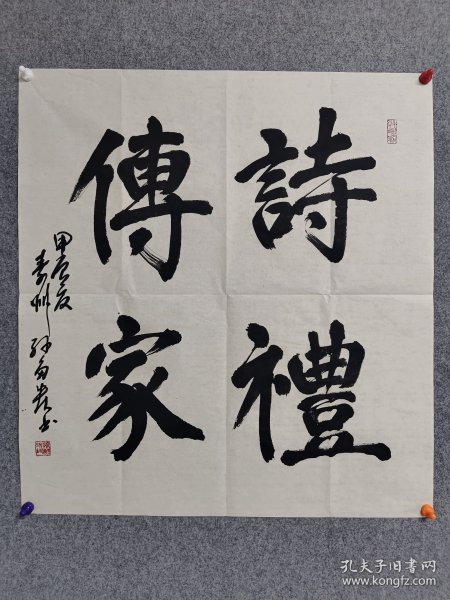 詩禮
傳家
甲辰夏
孔夫子旧书网
www.kongfz.com